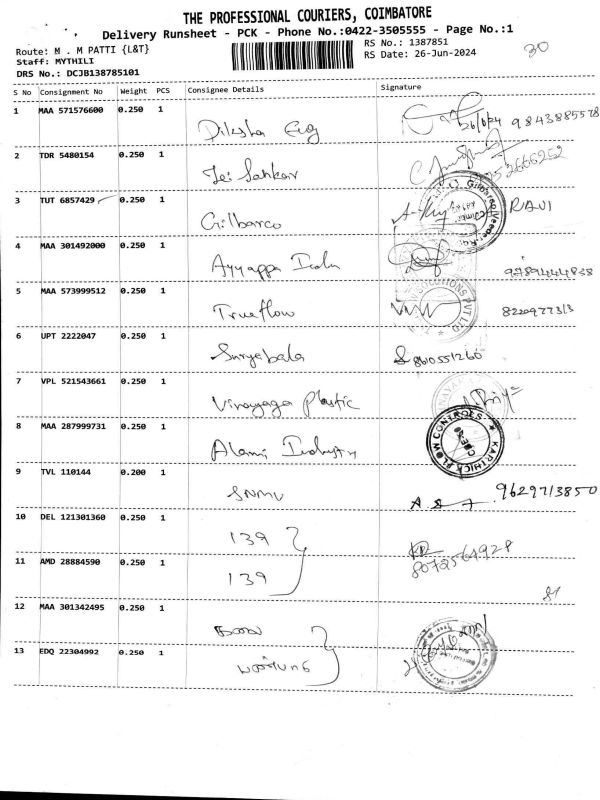 THE PROFESSIONAL COURIERS, COIMBATORE
Delivery Runsheet - PCK - Phone No.:0422-3505555 - Page No.:1
Route: M . M PATTI {L&T}
RS No.: 1387851
30
Staff: MYTHILI
RS Date: 26-Jun-2024
DRS No.: DCJB138785101
S No Consignment No Weight PCS Consignee Details Signature
1 MAA 571576600 0.250 1 Diksha Eng 26/6/24 9843885578
2 TDR 5480154 0.250 1 Jei Sankar
3 TUT 6857429 0.250 1 Gilbarco RAVI
4 MAA 301492000 0.250 1 Ayyappa 9789444838
5 MAA 573999512 0.250 1 Trueflow
6 UPT 2222047 0.250 1 Suryabala 8610551260
7 VPL 521543661 0.250 1 Vinayaga Plastic
8 MAA 287999731 0.250 1 KARTHICK FLOW CONTROLS
9 TVL 110144 0.200 1 SNMV 9629713850
10 DEL 121301360 0.250 1 139 8072564928
11 AMD 28884590 0.250 1 139
12 MAA 301342495 0.250 1
13 EDQ 22304992 0.250 1